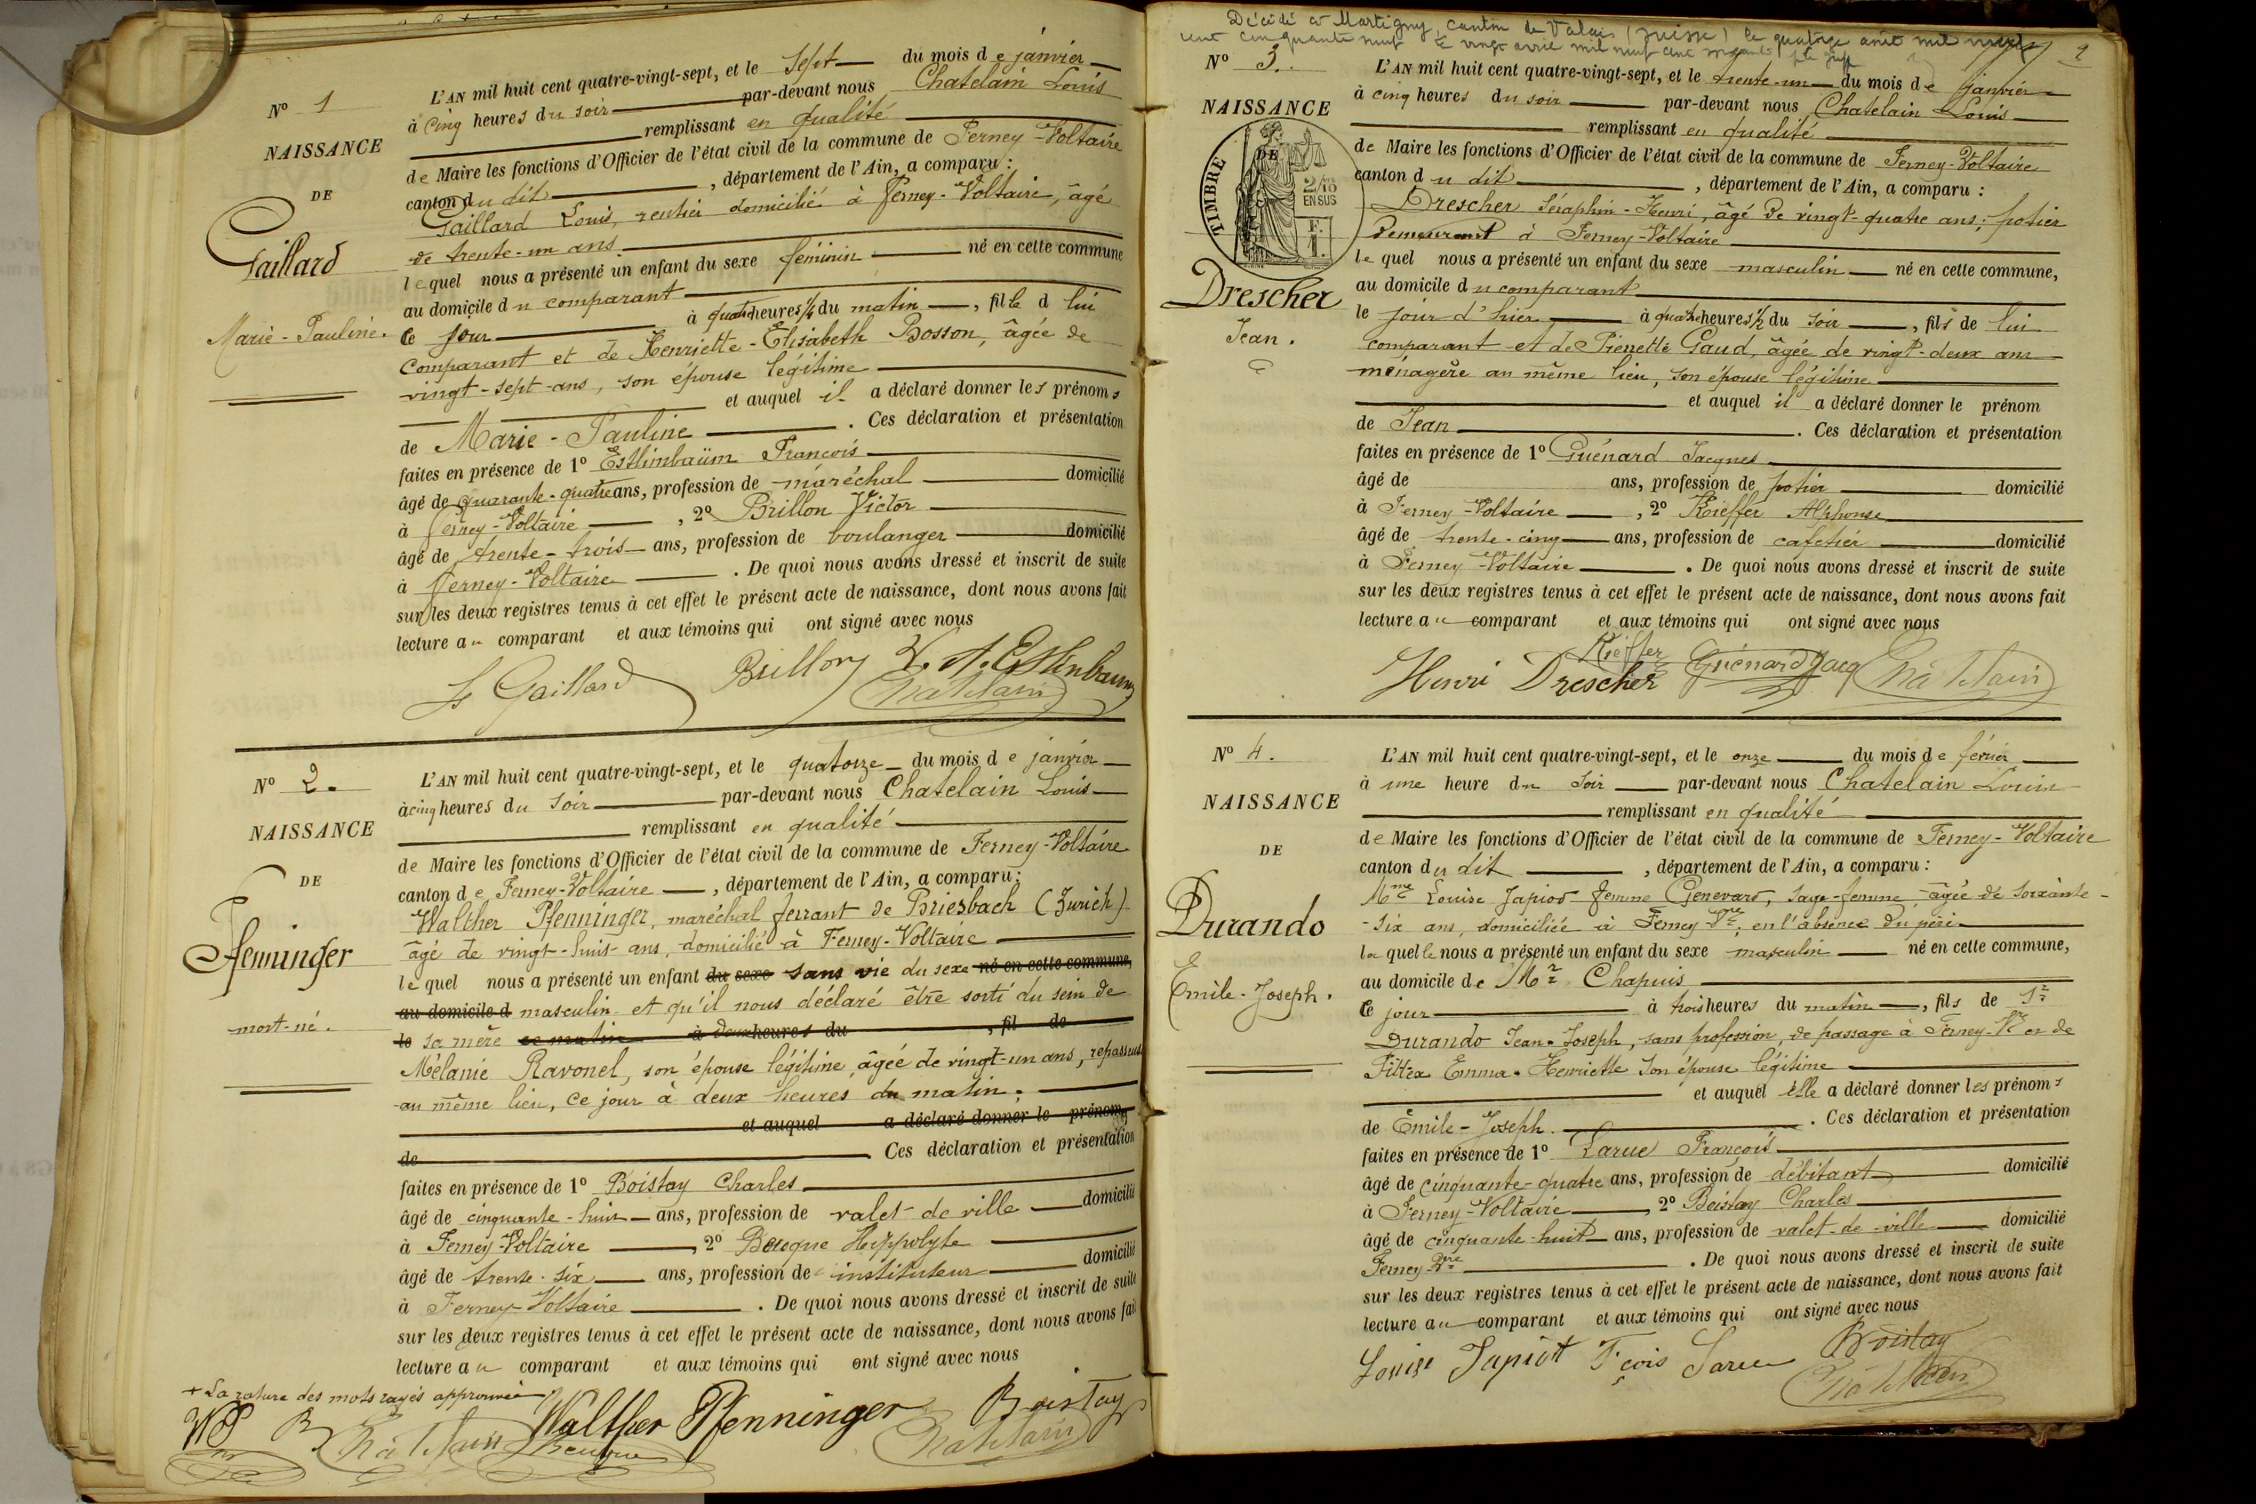 Nº 1
NAISSANCE
DE
Gaillard
Marie-Pauline.
L'AN mil huit cent quatre-vingt-sept, et le sept du mois de janvier
à cinq heures du soir par-devant nous Chatelain Louis
remplissant en qualité
de Maire les fonctions d'Officier de l'état civil de la commune de Ferney-Voltaire
canton du dit, département de l'Ain, a comparu :
Gaillard Louis, rentier domicilié à Ferney-Voltaire, âgé
de trente-un ans
lequel nous a présenté un enfant du sexe féminin né en cette commune
au domicile du comparant
ce jour à quatre heures 1/4 du matin, fille d lui
comparant et de Henriette-Elisabeth Bosson, âgée de
vingt-sept-ans, son épouse légitime
et auquel il a déclaré donner les prénoms
de Marie-Pauline. Ces déclaration et présentation
faites en présence de 1º Estlimbaüm François
âgé de quarante-quatre ans, profession de maréchal domicilié
à Ferney-Voltaire, 2º Brillon Victor
âgé de trente-trois ans, profession de boulanger domicilié
à Ferney-Voltaire. De quoi nous avons dressé et inscrit de suite
sur les deux registres tenus à cet effet le présent acte de naissance, dont nous avons fait
lecture au comparant et aux témoins qui ont signé avec nous
Ls Gaillard Brillon Chatelain
Nº 2.
NAISSANCE
DE
Pfenninger
mort-né.
L'AN mil huit cent quatre-vingt-sept, et le quatorze du mois de janvier
à cinq heures du soir par-devant nous Chatelain Louis
remplissant en qualité
de Maire les fonctions d'Officier de l'état civil de la commune de Ferney-Voltaire
canton de Ferney-Voltaire, département de l'Ain, a comparu :
Walther Pfenninger, maréchal ferrant de Briesbach (Zurich)
âgé de vingt-huit-ans, domicilié à Ferney-Voltaire
lequel nous a présenté un enfant du sexe sans vie du sexe né en cette commune,
au domicile d masculin et qu'il nous déclaré être sorti du sein de
le sa mère ce matin à deux heures du, fil de
Mélanie Ravonel, son épouse légitime, âgée de vingt-un ans, repasseuse
au même lieu, ce jour à deux heures du matin.
et auquel a déclaré donner le prénom
de Ces déclaration et présentation
faites en présence de 1º Boistay Charles
âgé de cinquante-huit ans, profession de valet de ville domicilié
à Ferney-Voltaire, 2º Hippolyte
âgé de trente-six ans, profession de instituteur domicilié
à Ferney-Voltaire. De quoi nous avons dressé et inscrit de suite
sur les deux registres tenus à cet effet le présent acte de naissance, dont nous avons fait
lecture au comparant et aux témoins qui ont signé avec nous
+ La rature des mots rayés approuvée
WP B Chatelain Walther Pfenninger Boistay Chatelain
Décédé à Martigny, canton de Valais (Suisse) le quatorze août mil neuf
cent cinquante neuf
2
Nº 3.
NAISSANCE
DE
TIMBRE
2/10
EN SUS
F.
1.
Drescher
Jean.
L'AN mil huit cent quatre-vingt-sept, et le trente-un du mois de janvier
à cinq heures du soir par-devant nous Chatelain Louis
remplissant en qualité
de Maire les fonctions d'Officier de l'état civil de la commune de Ferney-Voltaire
canton du dit, département de l'Ain, a comparu :
Drescher Séraphin-Henri, âgé de vingt-quatre ans, potier
demeurant à Ferney-Voltaire
lequel nous a présenté un enfant du sexe masculin né en cette commune,
au domicile du comparant
le jour d'hier à quatre heures 1/2 du soir, fils de lui
comparant et de Pienette Gaud, âgée de vingt-deux ans
ménagère au même lieu, son épouse légitime
et auquel il a déclaré donner le prénom
de Jean. Ces déclaration et présentation
faites en présence de 1º Guénard Jacques
âgé de ans, profession de potier domicilié
à Ferney-Voltaire, 2º Kieffer Alphonse
âgé de trente-cinq ans, profession de cafetier domicilié
à Ferney-Voltaire. De quoi nous avons dressé et inscrit de suite
sur les deux registres tenus à cet effet le présent acte de naissance, dont nous avons fait
lecture au comparant et aux témoins qui ont signé avec nous
Kieffer
Henri Drescher Guénard Jacq Chatelain
Nº 4.
NAISSANCE
DE
Durando
Emile-Joseph.
L'AN mil huit cent quatre-vingt-sept, et le onze du mois de février
à une heure du soir par-devant nous Chatelain Louis
remplissant en qualité
de Maire les fonctions d'Officier de l'état civil de la commune de Ferney-Voltaire
canton du dit, département de l'Ain, a comparu :
Mme Louise Japiot femme Genevard, sage-femme, âgée de soixante-
-six ans, domiciliée à Ferney-Vre, en l'absence du père
laquelle nous a présenté un enfant du sexe masculin né en cette commune,
au domicile de Mr Chapuis
ce jour à trois heures du matin, fils de Sr
Durando Jean-Joseph, sans profession, de passage à Ferney-Vre et de
Emma-Henriette son épouse légitime
et auquel elle a déclaré donner les prénoms
de Emile-Joseph. Ces déclaration et présentation
faites en présence de 1º Larue François
âgé de cinquante-quatre ans, profession de débitant domicilié
à Ferney-Voltaire, 2º Boistay Charles
âgé de cinquante-huit ans, profession de valet-de-ville domicilié
Ferney-Vre. De quoi nous avons dressé et inscrit de suite
sur les deux registres tenus à cet effet le présent acte de naissance, dont nous avons fait
lecture au comparant et aux témoins qui ont signé avec nous
Louise Japiot Fçois Larue Boistay
Chatelain